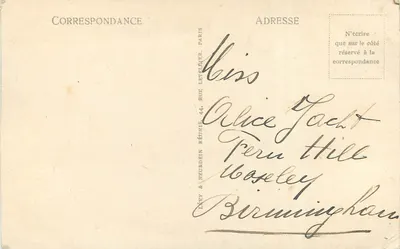 CORRESPONDANCE
ADRESSE
N'écrire
que sur le côté
réservé à la
correspondance
LEVY & NEURDEIN RÉUNIS, 44, RUE LETELLIER, PARIS
Miss
Alice
Fern Hill
Moseley
Birmingham